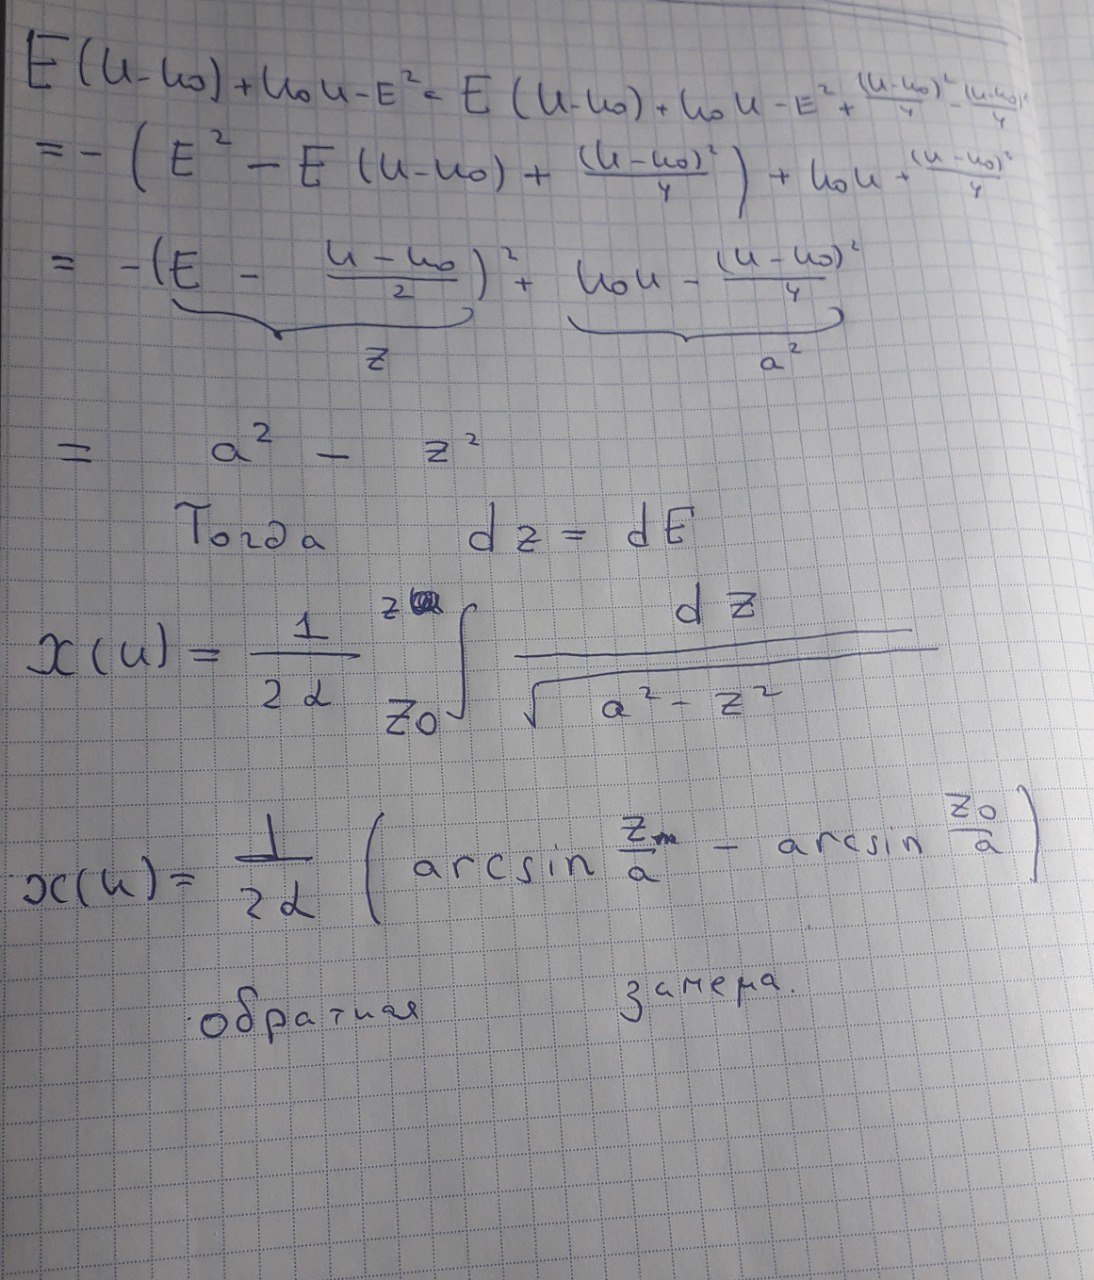 E(u-u₀)+u₀u-E²= E(u-u₀)+u₀u-E²+(u-u₀)²/4-(u-u₀)²/4
=-(E²-E(u-u₀)+(u-u₀)²/4)+u₀u+(u-u₀)²/4
= -(E - (u-u₀)/2)² + u₀u - (u-u₀)²/4
z a²
= a² - z²
Тогда dz = dE
x(u) = 1/(2α) ∫ z₀ z dz/√(a²-z²)
x(u) = 1/(2α) (arcsin z/a - arcsin z₀/a)
обратная замена.